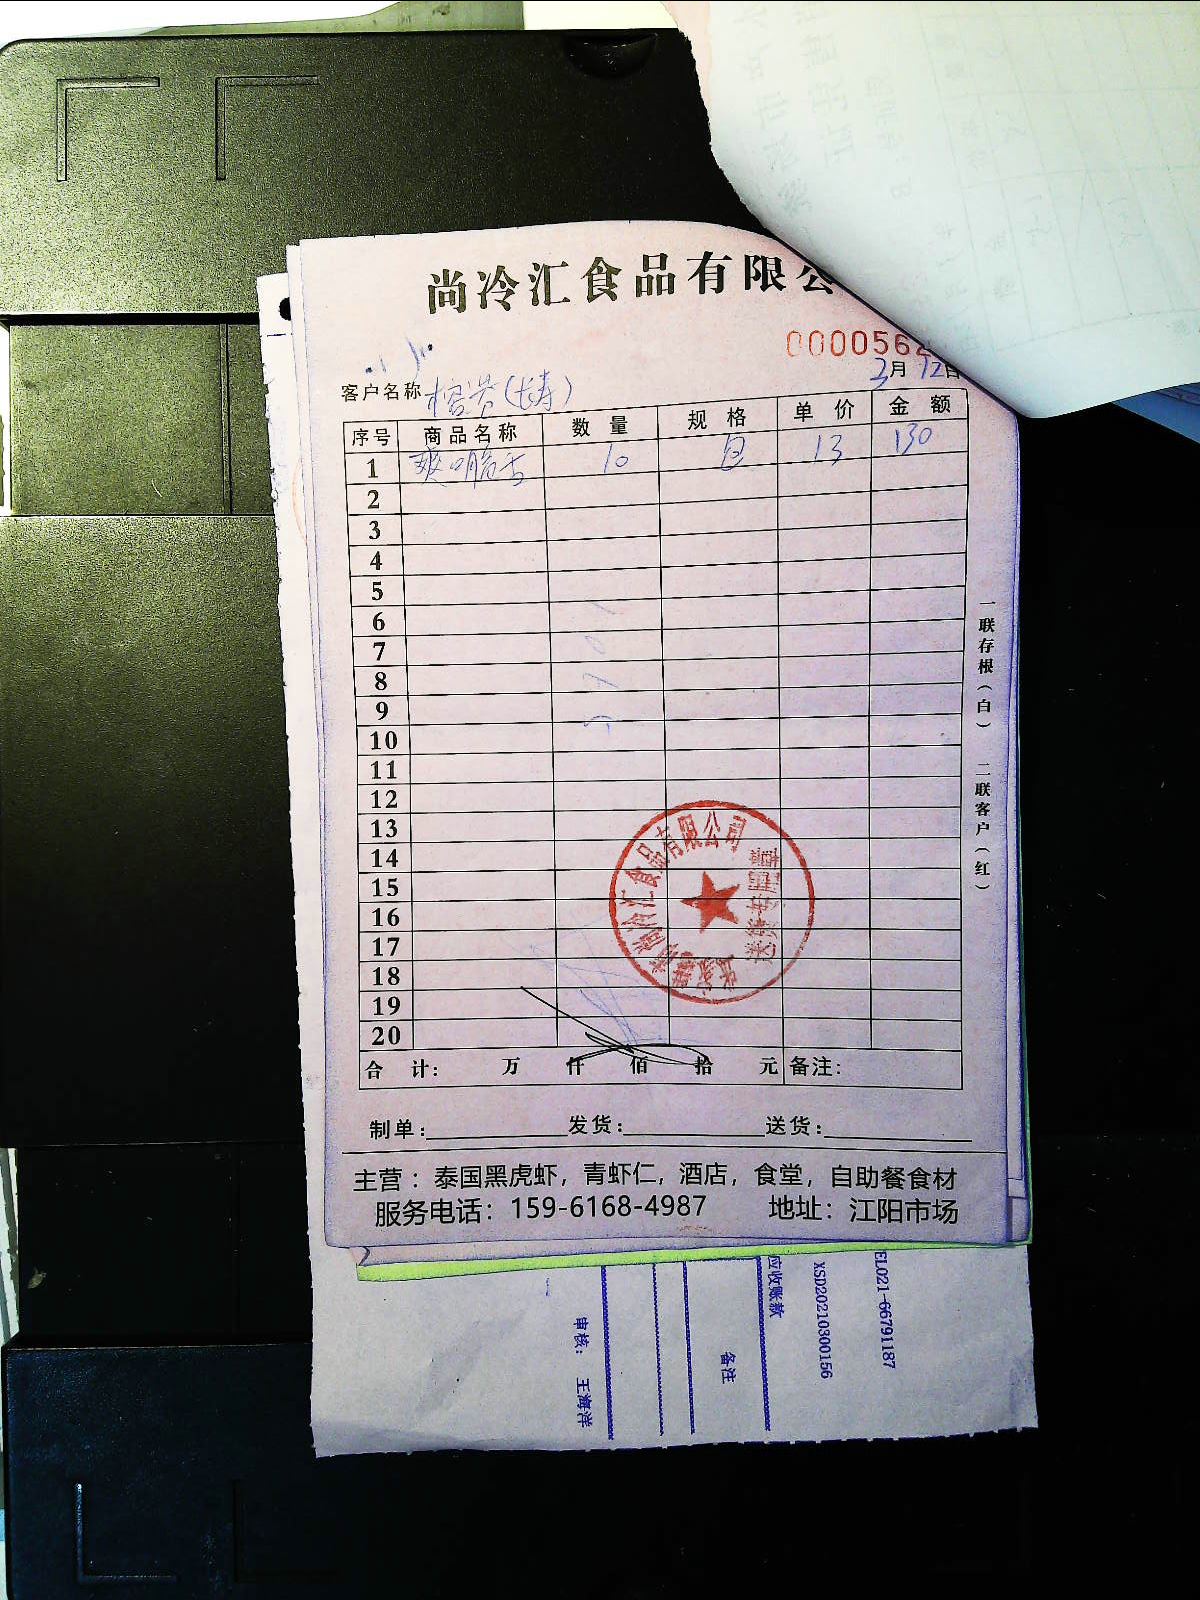 尚冷汇食品有限公
0000562
3月12日
客户名称 (长寿)
序号 商品名称 数量 规格 单价 金额
1 10 包 13 130
2
3
4
5
6
7
8
9
10
11
12
13
14
15
16
17
18
19
20
合计: 万 仟 佰 拾 元 备注:
制单: 发货: 送货:
主营：泰国黑虎虾，青虾仁，酒店，食堂，自助餐食材
服务电话：159-6168-4987 地址：江阳市场
一联存根（白） 二联客户（红）
尚冷汇食品有限公司
EL021-66791187
XSD20210300156
应收账款
备注
审核: 王海洋